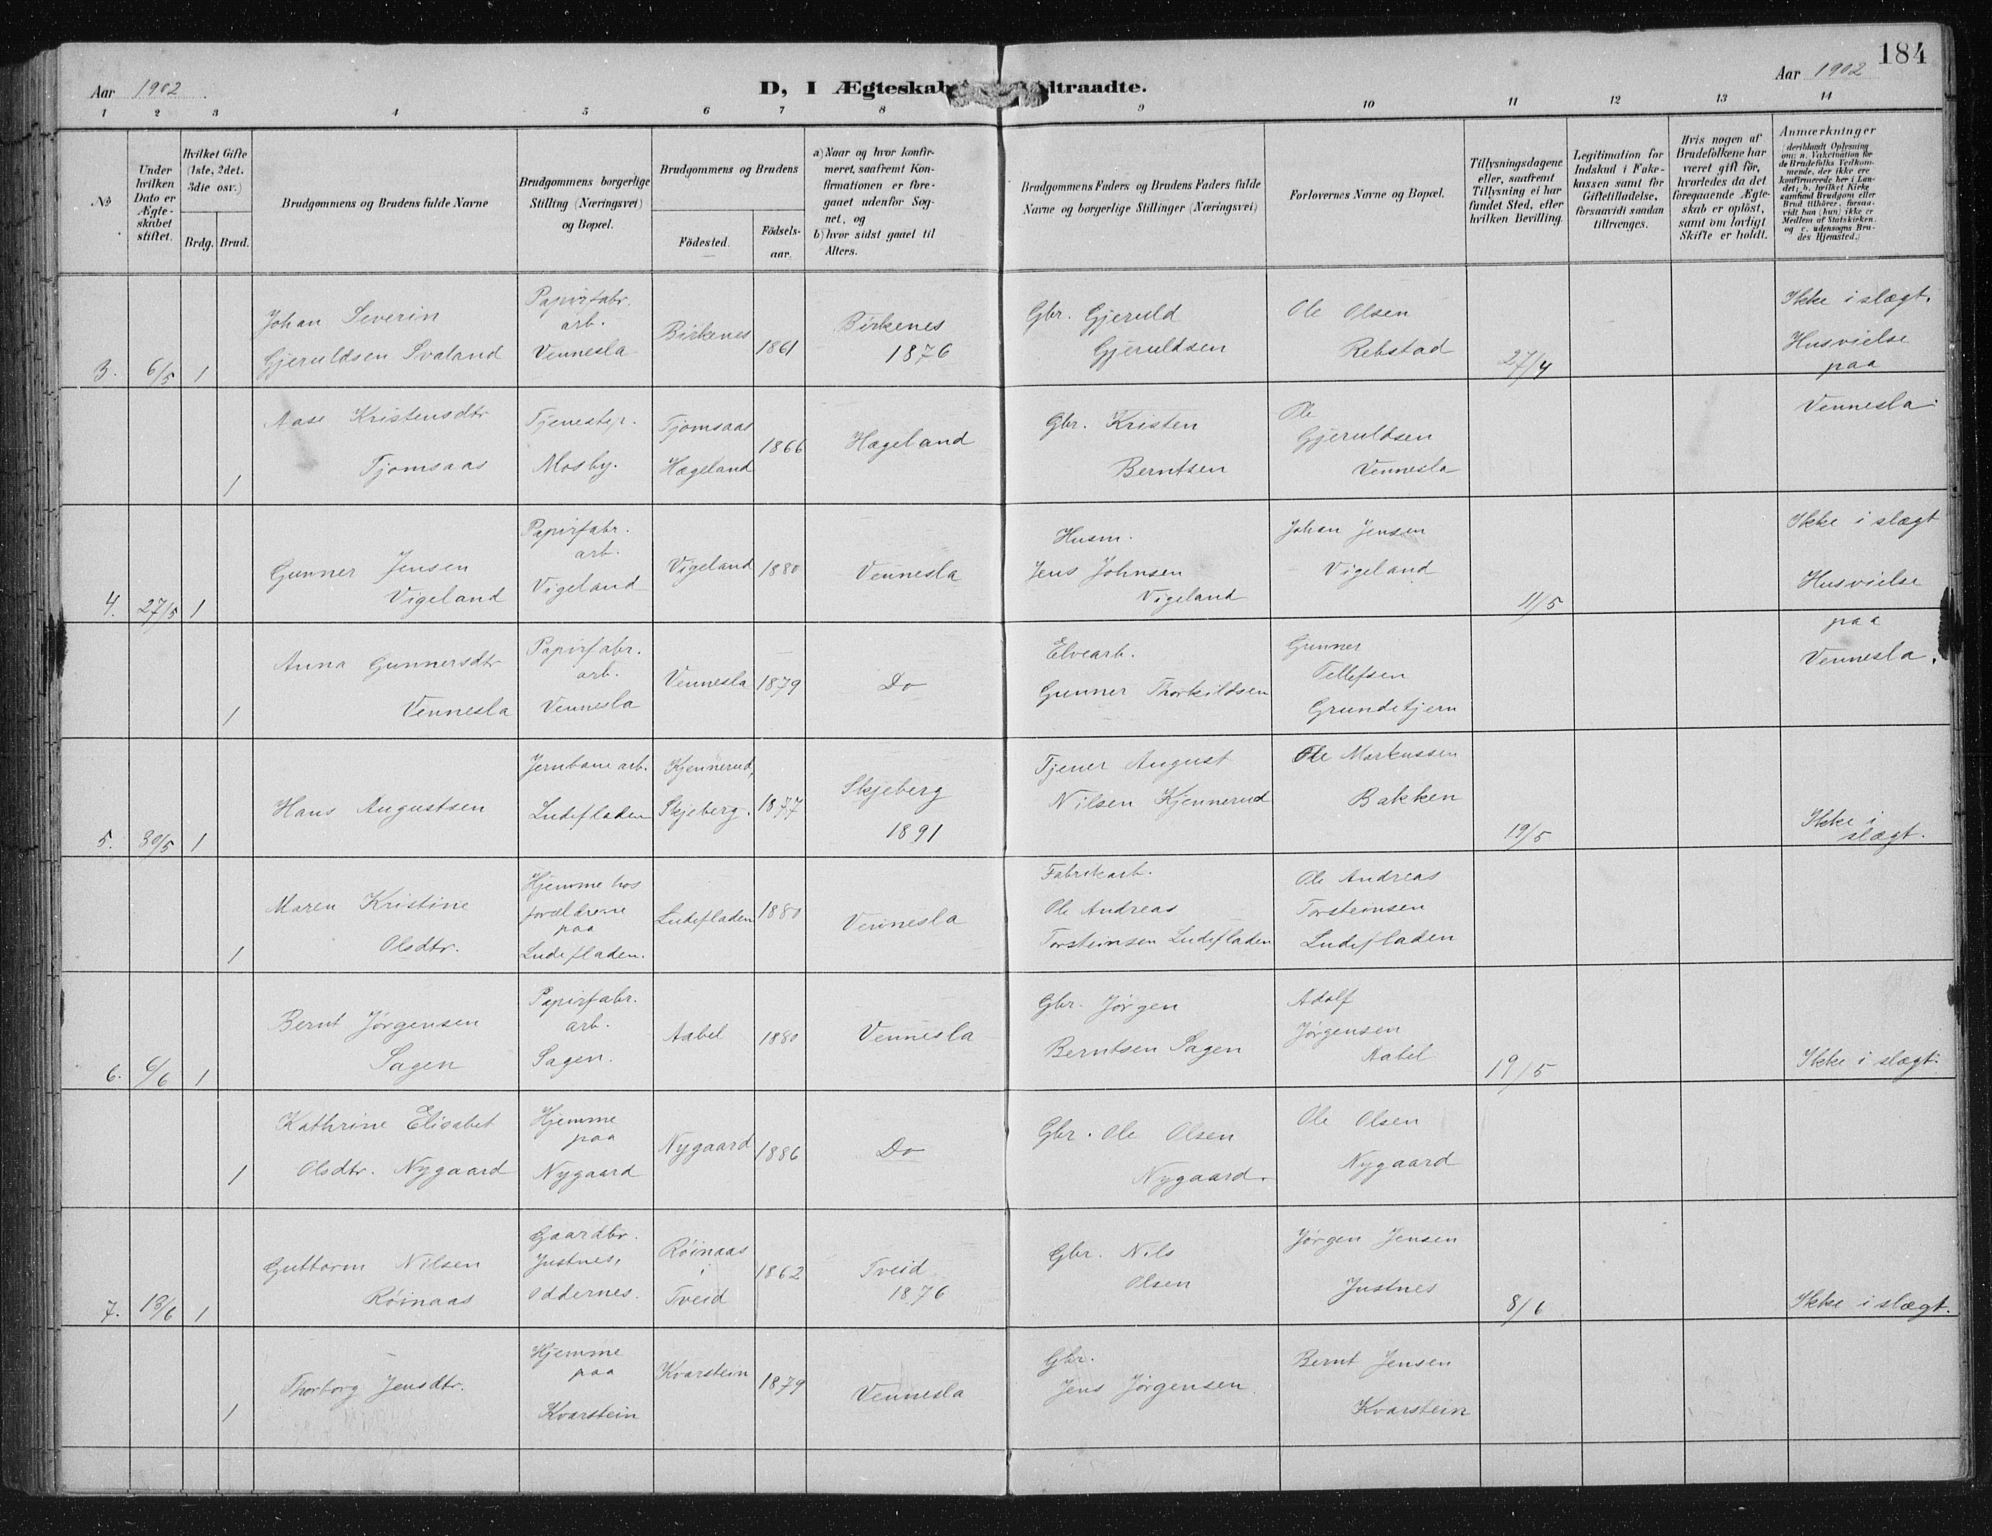 184
Aar 1902
D, I Ægteskab ... dtraadte.
Aar 1902
1 2 3 4 5 6 7 8 9 10 11 12 13 14
No
Under hvilken Dato er Ægteskabet stiftet.
Hvilket Gifte (1ste, 2det. 3die osv.)
Brdg. Brud.
Brudgommens og Brudens fulde Navne
Brudgommens borgerlige Stilling (Næringsvei) og Bopæl.
Brudgommens og Brudens
Fødested.
Fødselsaar.
a) Naar og hvor konfirmeret, saafremt Konfirmationen er foregaaet udenfor Sognet, og
b) hvor sidst gaaet til Alters.
Brudgommens Faders og Brudens Faders fulde Navne og borgerlige Stillinger (Næringsvei)
Forlovernes Navne og Bopæl.
Tillysningsdagene eller, saafremt Tillysning ei har fundet Sted, efter hvilken Bevilling.
Legitimation for Indskud i Enkekassen samt for Giftetilladelse, forsaavidt saadan tiltrænges.
Hvis nogen af Brudefolkene har været gift før, hvorledes da det foregaaende Ægteskab er opløst, samt om lovligt Skifte er holdt.
Anmærkninger
(deriblandt Oplysning om: a. Vakcination for de Brudefolks Vedkommende, der ikke ere konfirmerede her i Landet; b. hvilket Kirkesamfund Brudgom eller Brud tilhører, forsaavidt han (hun) ikke er Medlem af Statskirken, og c. udensogns Brudes Hjemsted.)
3. 6/5 1
Johan Severin
Gjeruldsen Svaland
Papirfabr.
arb.
Vennesla
Birkenes
1861
Birkenes
1876
Gbr. Gjeruld
Gjeruldsen
Ole Olsen
Rebstad
27/4
Ikke i slægt.
Husvielse
paa
Vennesla.
1
Aase Kristensdtr
Tjomsaas
Tjenestep.
Mosby.
Tjomsaas
Hægeland
1866
Hægeland
Gbr. Kristen
Berntsen
Ole
Gjeruldsen
Vennesla
4. 27/5 1
Gunner Jensen
Vigeland
Papirfabr.
arb.
Vigeland
Vigeland
1880
Vennesla
Husm.
Jens Johnsen
Vigeland
Johan Jensen
Vigeland
11/5
Ikke i slægt
Husvielse
paa
Vennesla.
1
Anna Gunnersdtr
Vennesla
Papirfabr.
arb.
Vennesla
Vennesla
1879
Do
Elvearb.
Gunner Thorkildsen
Gunner
Tellefsen
Grundetjern
5. 30/5 1
Hans Augustsen
Jernbanearb.
Ludefladen
Kjennerud,
Skjeberg.
1877
Skjeberg
1891
Tjener August
Nilsen Kjennerud
Ole Markussen
Bakken
19/5
Ikke i
slægt.
1
Maren Kristine
Olsdtr.
Hjemme hos
forældrene
paa
Ludefladen.
Ludefladen
1880
Vennesla
Fabrikarb.
Ole Andreas
Torsteinsen Ludefladen
Ole Andreas
Torsteinsen
Ludefladen
6. 6/6 1
Bernt Jørgensen
Sagen
Papirfabr.
arb.
Sagen.
Aabel
1880
Vennesla
Gbr. Jørgen
Berntsen Sagen
Adolf
Jørgensen
Aabel
19/5
Ikke i slægt.
1
Kathrine Elisabet
Olsdtr. Nygaard
Hjemme
paa
Nygaard
Nygaard
1886
Do
Gbr. Ole Olsen
Nygaard.
Ole Olsen
Nygaard
7. 13/6 1
Guttorm Nilsen
Røinaas
Gaardbr.
Justnes,
Oddernes.
Røinaas
i
Tveid
1862
Tveid
1876
Gbr. Nils
Olsen
Jørgen Jensen
Justnes
8/6
Ikke i slægt.
1
Thorborg Jensdtr.
Hjemme
paa
Kvarstein
Kvarstein
1879
Vennesla
Gbr.
Jens Jørgensen
Bernt Jensen
Kvarstein